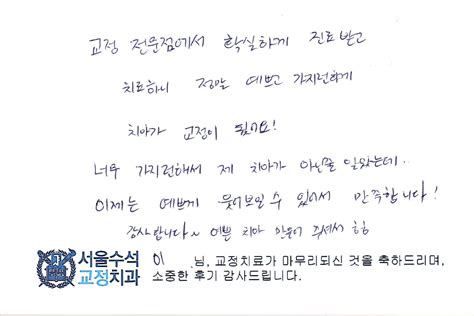 교정 전문점에서 확실하게 진료받고
치료하니 정말 예쁘고 가지런하게
치아가 교정이 됬어요!
너무 가지런해서 제 치아가 아닌줄 알았는데..
이제는 예쁘게 웃어보일 수 있어서 만족합니다!
감사합니다~ 예쁜 치아 만들어 주셔서 ㅎㅎ
서울수석 이 님, 교정치료가 마무리되신 것을 축하드리며,
교정치과 소중한 후기 감사드립니다.